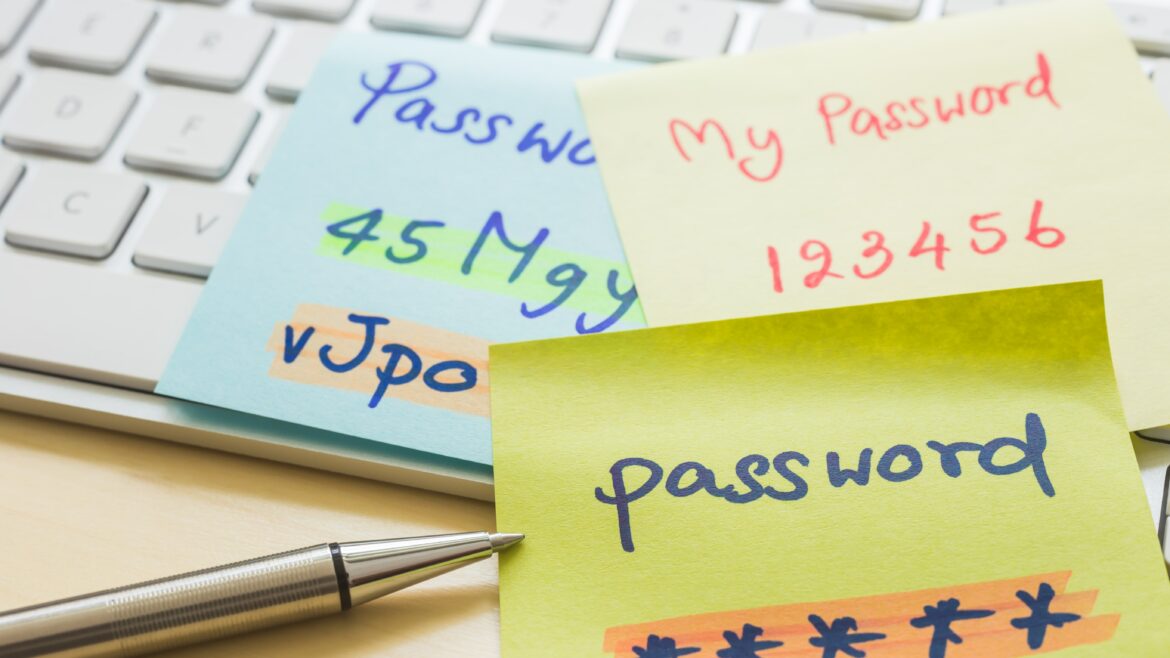 E R
D F
C V
Passwo
45 Mgy
vJpo
My Password
123456
password
*****